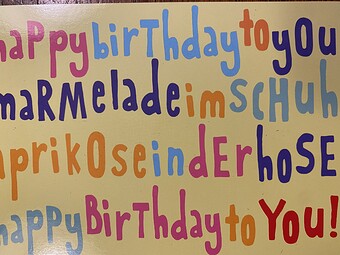 happy birthday to you
marmelade im schuh
aprikose in der hose
happy birthday to you!